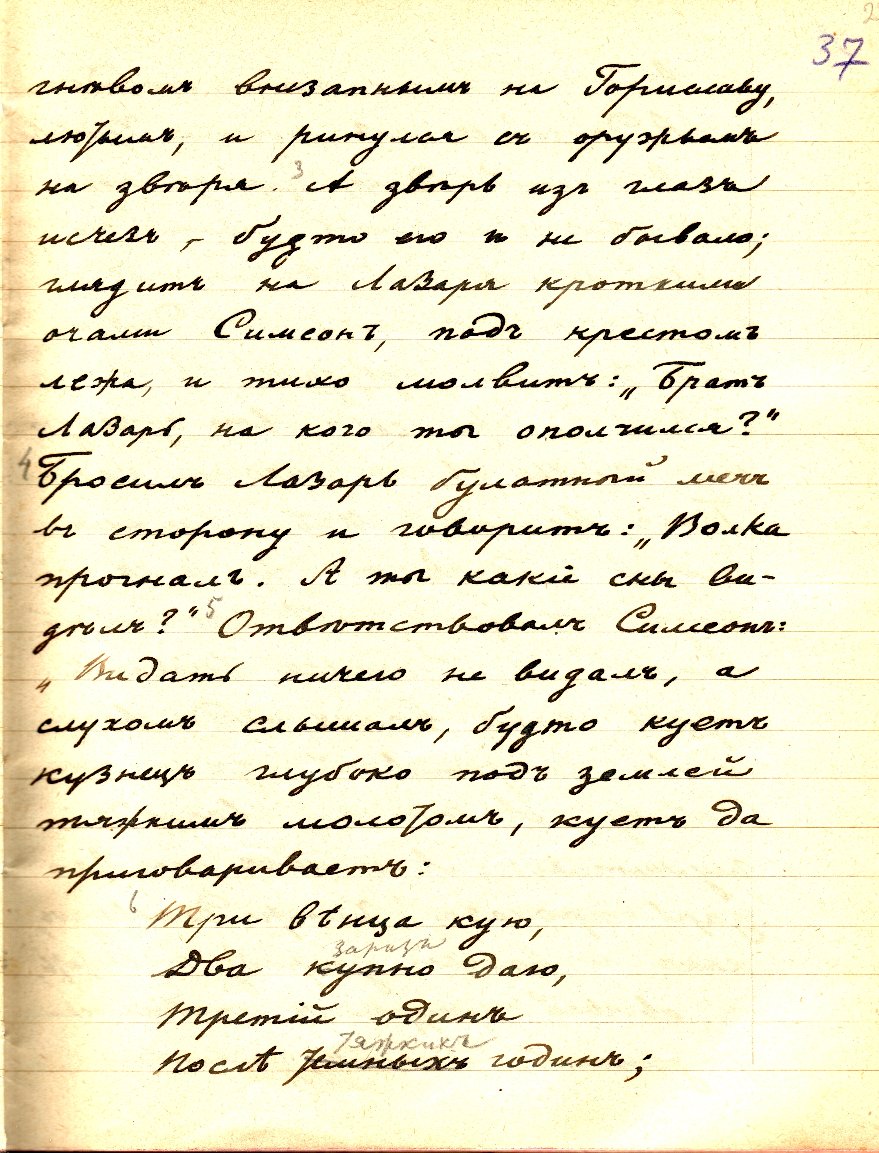 37
гнѣвомъ внезапнымъ на Гориславу,
лютымъ, и ринулся съ оружьемъ
на звѣря. 3 А звѣрь изъ глазъ
исчезъ, – будто его и не бывало;
глядитъ на Лазаря кроткими
очами Симеонъ, подъ крестомъ
лежа, и тихо молвитъ: „Братъ
Лазарь, на кого ты ополчился?"
4 Бросилъ Лазарь булатный мечъ
въ сторону и говоритъ: „Волка
прогналъ. А ты какіе сны ви-
дѣлъ?" 5 Отвѣтствовалъ Симеонъ:
„Видать ничего не видалъ, а
слухомъ слышалъ, будто куетъ
кузнецъ глубоко подъ землей
тяжкимъ молотомъ, куетъ да
приговариваетъ:
6 Три вѣнца кую,
Два купно даю,
Третій одинъ
тяжкихъ
Послѣ темныхъ годинъ;